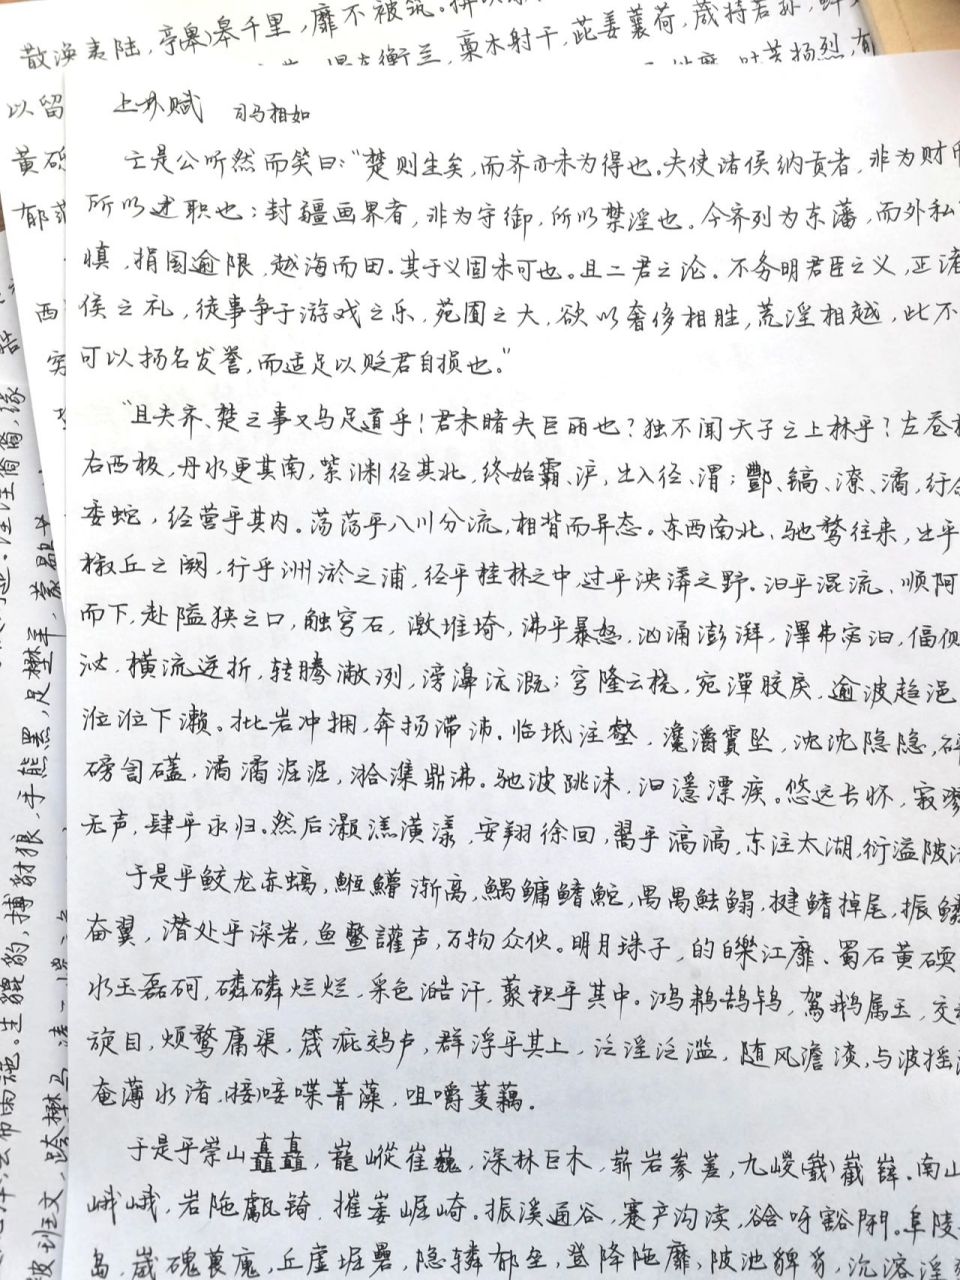 散涣夷陆，亭皋千里，靡不被筑。
衡兰，槀木射干，茈姜蘘荷，葴持若荪，
以留
黄砾
郁
西
上林赋 司马相如
亡是公听然而笑曰："楚则失矣，而齐亦未为得也。夫使诸侯纳贡者，非为财币
所以述职也；封疆画界者，非为守御，所以禁淫也。今齐列为东藩，而外私
慎，捐国逾限，越海而田。其于义固未可也。且二君之论。不务明君臣之义，正诸
侯之礼，徒事争于游戏之乐，苑囿之大，欲以奢侈相胜，荒淫相越，此不
可以扬名发誉，而适足以贬君自损也。"
"且夫齐、楚之事又乌足道乎！君未睹夫巨丽也？独不闻天子之上林乎？左苍
右西极，丹水更其南，紫渊径其北，终始霸、浐，出入泾、渭；酆、镐、潦、潏，纡余
委蛇，经营乎其内。荡荡乎八川分流，相背而异态。东西南北、驰骛往来，出乎
椒丘之阙，行乎洲淤之浦，经乎桂林之中，过乎泱漭之野。汩乎混流、顺阿
而下，赴隘狭之口，触穹石，激堆埼，沸乎暴怒，汹涌澎湃，滭弗宓汩，偪侧
泌，横流逆折，转腾潎洌，滂濞沆溉；穹隆云桡，宛潬胶戾，逾波趋浥
涖涖下濑。批岩冲拥，奔扬滞沛。临坻注壑，瀺灂霣坠，沈沈隐隐，砰
磅訇礚，潏潏淈淈，湁潗鼎沸。驰波跳沫，汩㴔漂疾。悠远长怀，寂漻
无声，肆乎永归。然后灏溔潢漾，安翔徐回，翯乎滈滈，东注太湖，衍溢陂池
于是乎鲛龙赤螭，䱎䲛渐离，鰅鳙鳍鮀，禺禺魼鳎，揵鳍掉尾，振鳞
奋翼，潜处乎深岩，鱼鳖讙声，万物众伙。明月珠子，的皪江靡、蜀石黄碝
水玉磊砢，磷磷烂烂，采色澔汗，藂积乎其中。鸿鹔鹄鸨，鴐鹅属玉，交
旋目，烦鹜庸渠，箴疵鵁卢，群浮乎其上，泛淫泛滥，随风澹淡，与波摇
奄薄水渚，唼喋菁藻，咀嚼菱藕。
于是乎崇山矗矗，巃嵷崔巍，深林巨木，崭岩参差，九嵕巀嶭。南山
峨峨，岩陁甗锜，摧崣崛崎。振溪通谷，蹇产沟渎，谽呀豁閜。阜陵
岛，崴磈葨廆，丘虚堀礨，隐辚郁垒，登降陁靡，陂池貏豸，沇溶淫
生貔豹，搏豺狼，手熊罴，足壄羊，蒙鹖
被班文，跨壄马